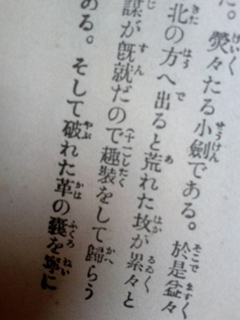 だ。熒々たる小劍である。於是盆々
北の方へ出ると荒れた坟が累々と
謀が既就だので趣裝をして歸らう
ある。そして破れた革の嚢を寧に